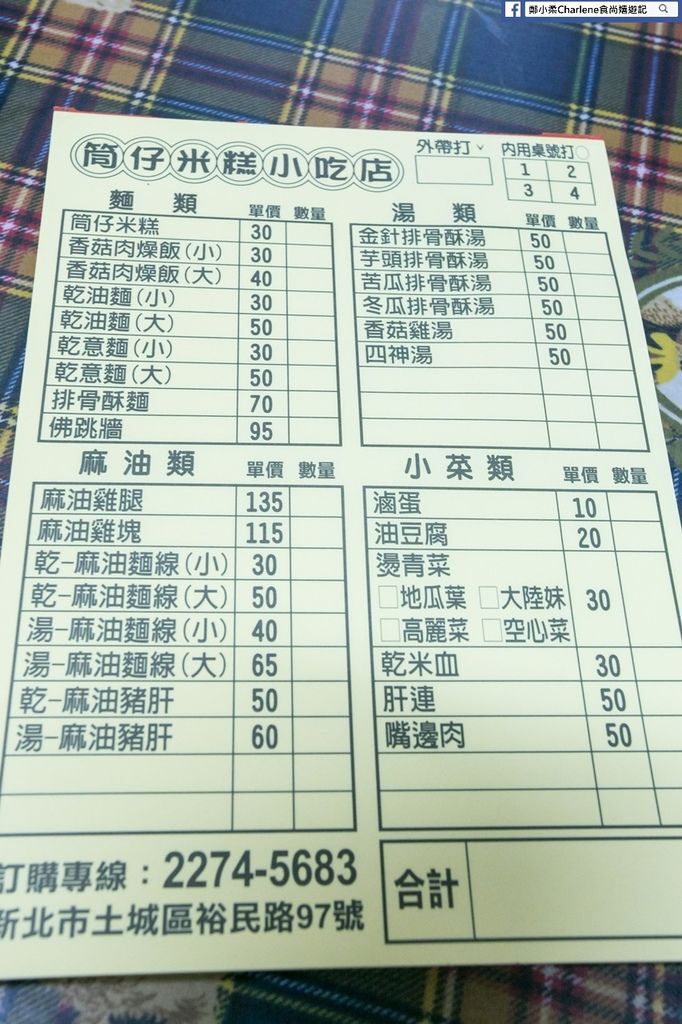 鄭小柔Charlene食尚嬉遊記
筒仔米糕小吃店
外帶打ˇ
內用桌號打○
1 2
3 4
麵類 單價 數量
筒仔米糕 30
香菇肉燥飯(小) 30
香菇肉燥飯(大) 40
乾油麵(小) 30
乾油麵(大) 50
乾意麵(小) 30
乾意麵(大) 50
排骨酥麵 70
佛跳牆 95
湯類 單價 數量
金針排骨酥湯 50
芋頭排骨酥湯 50
苦瓜排骨酥湯 50
冬瓜排骨酥湯 50
香菇雞湯 50
四神湯 50
麻油類 單價 數量
麻油雞腿 135
麻油雞塊 115
乾-麻油麵線(小) 30
乾-麻油麵線(大) 50
湯-麻油麵線(小) 40
湯-麻油麵線(大) 65
乾-麻油豬肝 50
湯-麻油豬肝 60
小菜類 單價 數量
滷蛋 10
油豆腐 20
燙青菜
□地瓜葉 □大陸妹 30
□高麗菜 □空心菜
乾米血 30
肝連 50
嘴邊肉 50
訂購專線：2274-5683
新北市土城區裕民路97號
合計